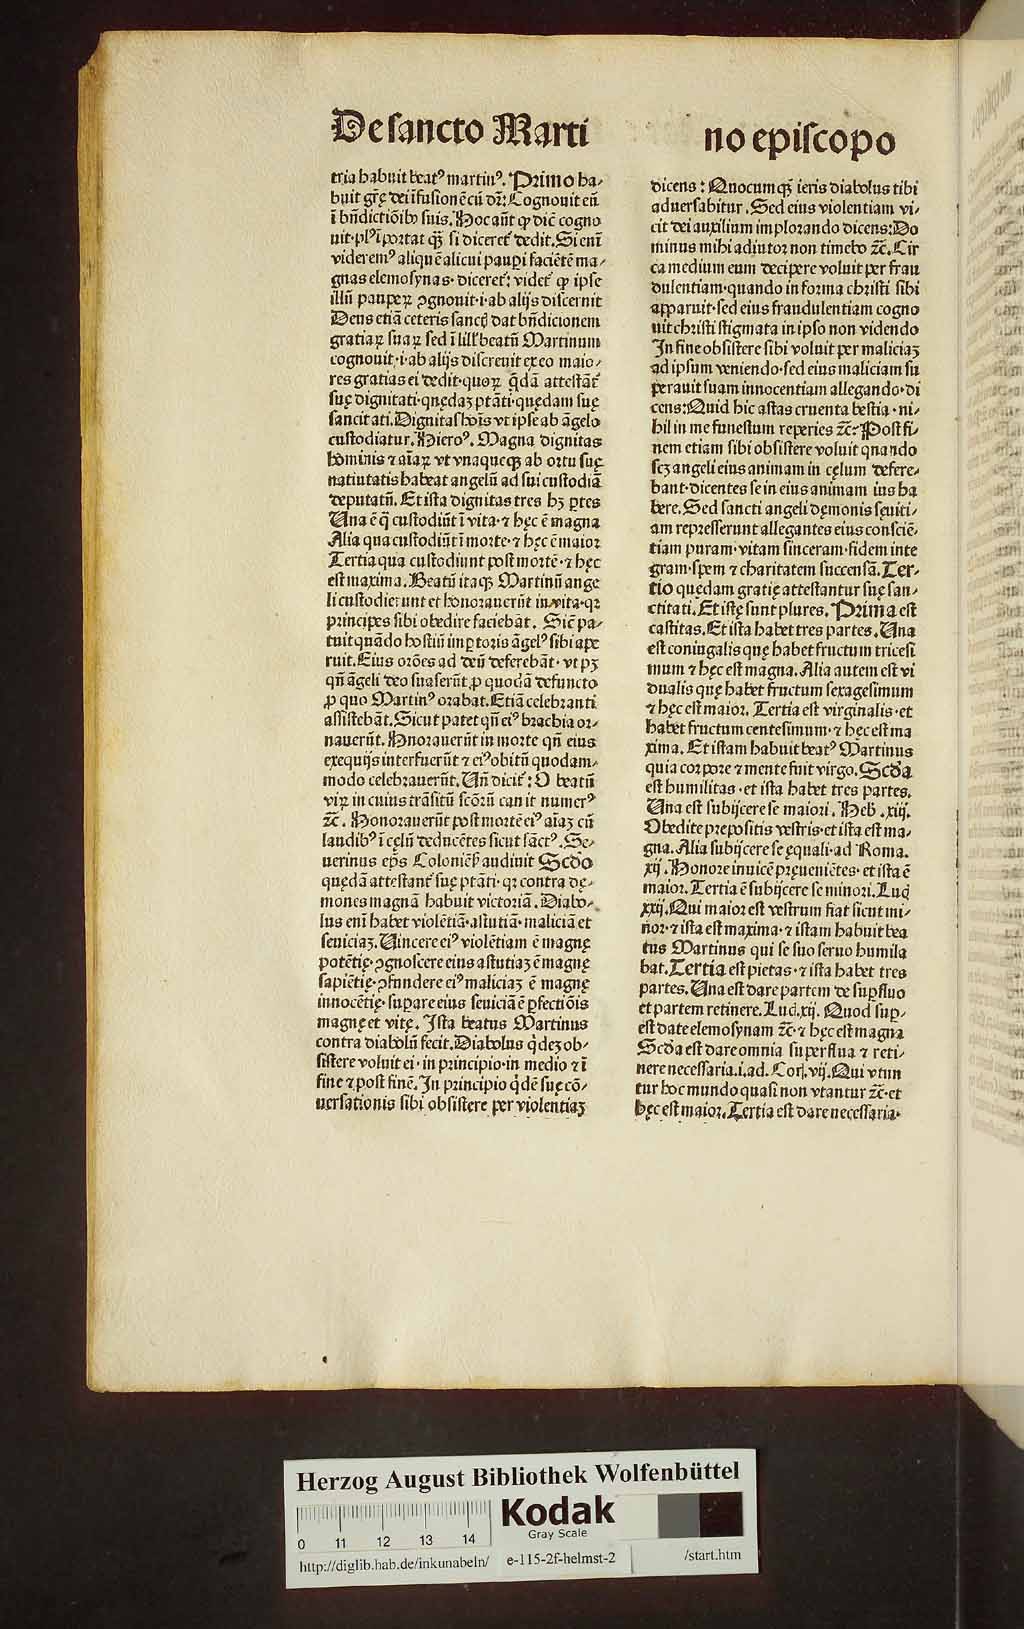 De sancto Marti
tria habuit beatꝰ martinꝰ. Primo ha⸗
buit grę̄ dei īfusionē cū dr̄: Cognouit eū
ī bn̄dictiōibꝰ suis. Hoc aūt ꝙ dīc cogno
uit·plꝰ īportat qꝫ si diceret̄ dedit. Si enī
videremꝰ aliquē alicui paupi faciētē ma⸗
gnas elemosynas·diceret̄: videt̄ ꝙ ipse
illū pauperꝝ ꝯgnouit·i·ab alijs discernit
Deus etiā ceteris sanctꝭ dat bn̄dicionem
gratiaꝝ suaꝝ sed ī lillꝰ beatū Martinum
cognouit·i·ab alijs discreuit ex eo maio⸗
res gratias ei dedit·quoꝝ q̄dā attestāt̄
suę dignitati·quędaꝫ ptāti·quędam suę
sancitati. Dignitas hoīs vt ipse ab āgelo
custodiatur. Hieroꝰ. Magna dignitas
hominis ⁊ aīaꝝ vt vnaqueqꝫ ab ortu suę
natiutatis habeat angelū ad sui custodiā
deputatū. Et ista dignitas tres hꝫ ꝑtes
Una ē q̄ custodiūt ī vita·⁊ hęc ē magna
Alia qua custodiūt ī morte·⁊ hęc ē maior
Tertia qua custodiunt post mortē·⁊ hęc
est maxima. Beatū itaqꝫ Martinū ange
li custodierunt et honorauerūt in vita·qꝛ
principes sibi obedire faciebāt. Sic pa⸗
tuit quādo hostiū imꝑtoris āgelꝰ sibi ape
ruit. Eius orōes ad deū deferebāt·vt pꝫ
qn̄ āgeli deo suaserūt ꝓ quodā defuncto
ꝓ quo Martinꝰ orabat. Etiā celebranti
assistebāt. Sicut patet qn̄ eiꝰ brachia or⸗
nauerūt. Hnorauerūt in morte qn̄ eius
exequijs interfuerūt ⁊ eiꝰ obitū quodam⸗
modo celebrauerūt. Un̄ dicit̄: O beatū
virꝝ in cuius trāsitū scōrū canit numerꝰ
⁊c̄. Honorauerūt post mortē eiꝰ aīaꝫ cū
laudibꝰ ī cęlū deducētes sicut sāctꝰ. Se⸗
uerinus ep̄s Coloniēsꝭ audiuit Scd̄o
quędā attestant̄ suę ptāti·qꝛ contra dę⸗
mones magnā habuit victoriā. Diabo⸗
lus enī habet violētiā·astutiā·maliciā et
seuiciaꝫ. Uincere eiꝰ violētiam ē magnę
potētię·ꝯgnoscere eius astutiaꝫ ē magnę
sapiētię·ꝯfundere eiꝰ maliciaꝫ ē magnę
innocētię·suꝑare eius seuiciā ē ꝑfectiōis
magnę et vitę. Ista beatus Martinus
contra diabolū fecit. Diabolus q̄deꝫ ob⸗
sistere voluit ei·in principio·in medio ⁊ ī
fine ⁊ post finē. In principio q̄dē suę cō⸗
uersationis sibi obsistere per violentiaꝫ
no episcopo
dicens: Quocumqꝫ ieris diabolus tibi
aduersabitur. Sed eius violentiam vi⸗
cit dei auxilium implorando dicens: Do
minus mihi adiutor non timebo ⁊c̄. Cir
ca medium eum decipere voluit per frau
dulentiam·quando in forma christi sibi
apparuit·sed eius fraudulentiam cogno
uit christi stigmata in ipso non videndo
In fine obsistere sibi voluit per maliciaꝫ
ad ipsum veniendo·sed eius maliciam su
perauit suam innocentiam allegando·di
cens: Quid hic astas cruenta bestia·ni⸗
hil in me funestum reperies ⁊c̄: Post fi⸗
nem etiam sibi obsistere voluit quando
scꝫ angeli eius animam in cęlum defere⸗
bant·dicentes se in eius animam ius ha
bere. Sed sancti angeli dęmonis sęuiti⸗
am represserunt allegantes eius consciē⸗
tiam puram·vitam sinceram·fidem inte
gram·spem ⁊ charitatem succensā. Ter⸗
tio quędam gratię attestantur suę san⸗
ctitati. Et istę sunt plures. Prima est
castitas. Et ista habet tres partes. Una
est coniugalis quę habet fructum tricesi
mum ⁊ hęc est magna. Alia autem est vi
dualis quę habet fructum sexagesimum
⁊ hęc est maior. Tertia est virginalis·et
habet fructum centesimum·⁊ hęc est ma
xima. Et istam habuit beatꝰ Martinus
quia corpore ⁊ mente fuit virgo. Scd̄a
est humilitas·et ista habet tres partes.
Una est subijcere se maiori. Heb̄ .xiij.
Obedite prepositis vestris·et ista est ma⸗
gna. Alia subijcere se ęquali·ad Roma.
xij. Honore inuicē pręueniētes·et ista ē
maior. Tertia ē subijcere se minori. Luc̄
xxij. Qui maior est vestrum fiat sicut mi⸗
nor·⁊ ista est maxima·⁊ istam habuit bea
tus Martinus qui se suo seruo humila
bat. Tertia est pietas·⁊ ista habet tres
partes. Una est dare partem de suꝑfluo
et partem retinere. Luc̄.xij. Quod suꝑ⸗
est date elemosynam ⁊c̄·⁊ hęc est magna
Scd̄a est dare omnia superflua ⁊ reti⸗
nere necessaria.i.ad. Corꝭ.vij. Qui vtun
tur hoc mundo quasi non vtantur ⁊c̄·et
hęc est maior. Tertia est dare necessaria·
Herzog August Bibliothek Wolfenbüttel
Kodak
Gray Scale
0 11 12 13 14
http://diglib.hab.de/inkunabeln/ e-115-2f-helmst-2 /start.htm